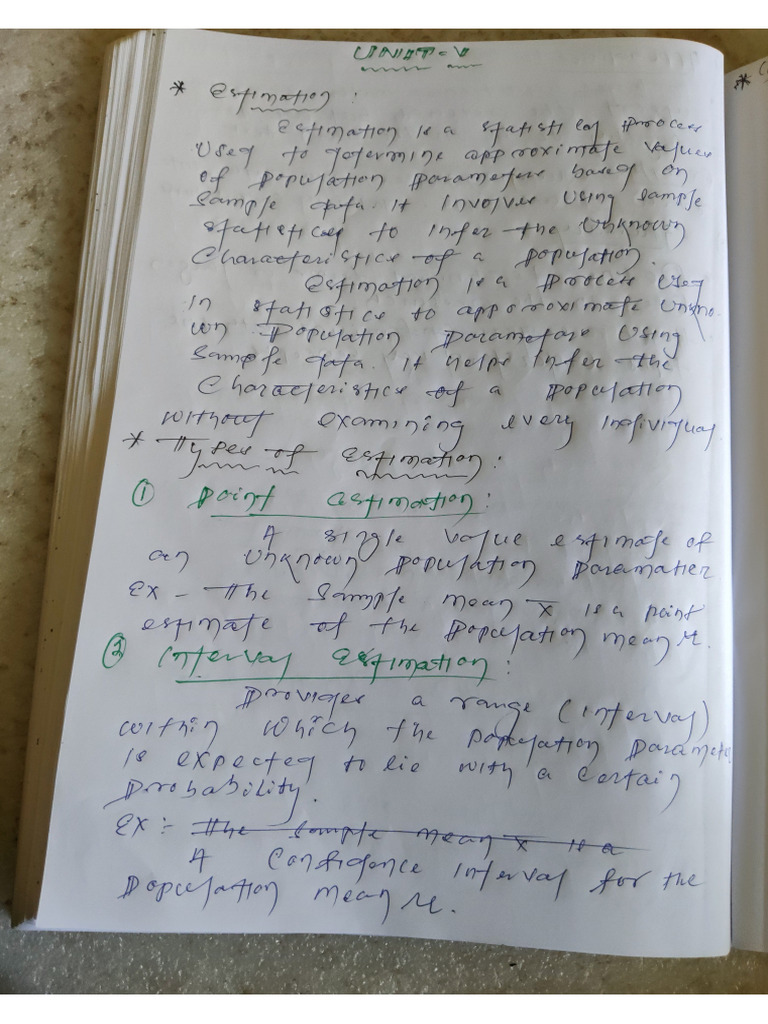 UNIT-V
* Estimation :
Estimation is a statistical process
used to determine approximate values
of population parameters based on
sample data. it involves using sample
statistics to infer the unknown
characteristics of a population.
Estimation is a process used
in statistics to approximate unkno
wn population parameters using
sample data. it helps infer the
characteristics of a population
without examining every individual
* Types of estimation :
① point estimation :
A single value estimate of
an unknown population parameter
Ex - The sample mean x̄ is a point
estimate of the population mean μ.
② interval estimation :
provides a range (interval)
within which the population paramete
is expected to lie with a certain
probability.
Ex :- ~~The sample mean x̄ is a~~
A confidence interval for the
population mean μ.
*